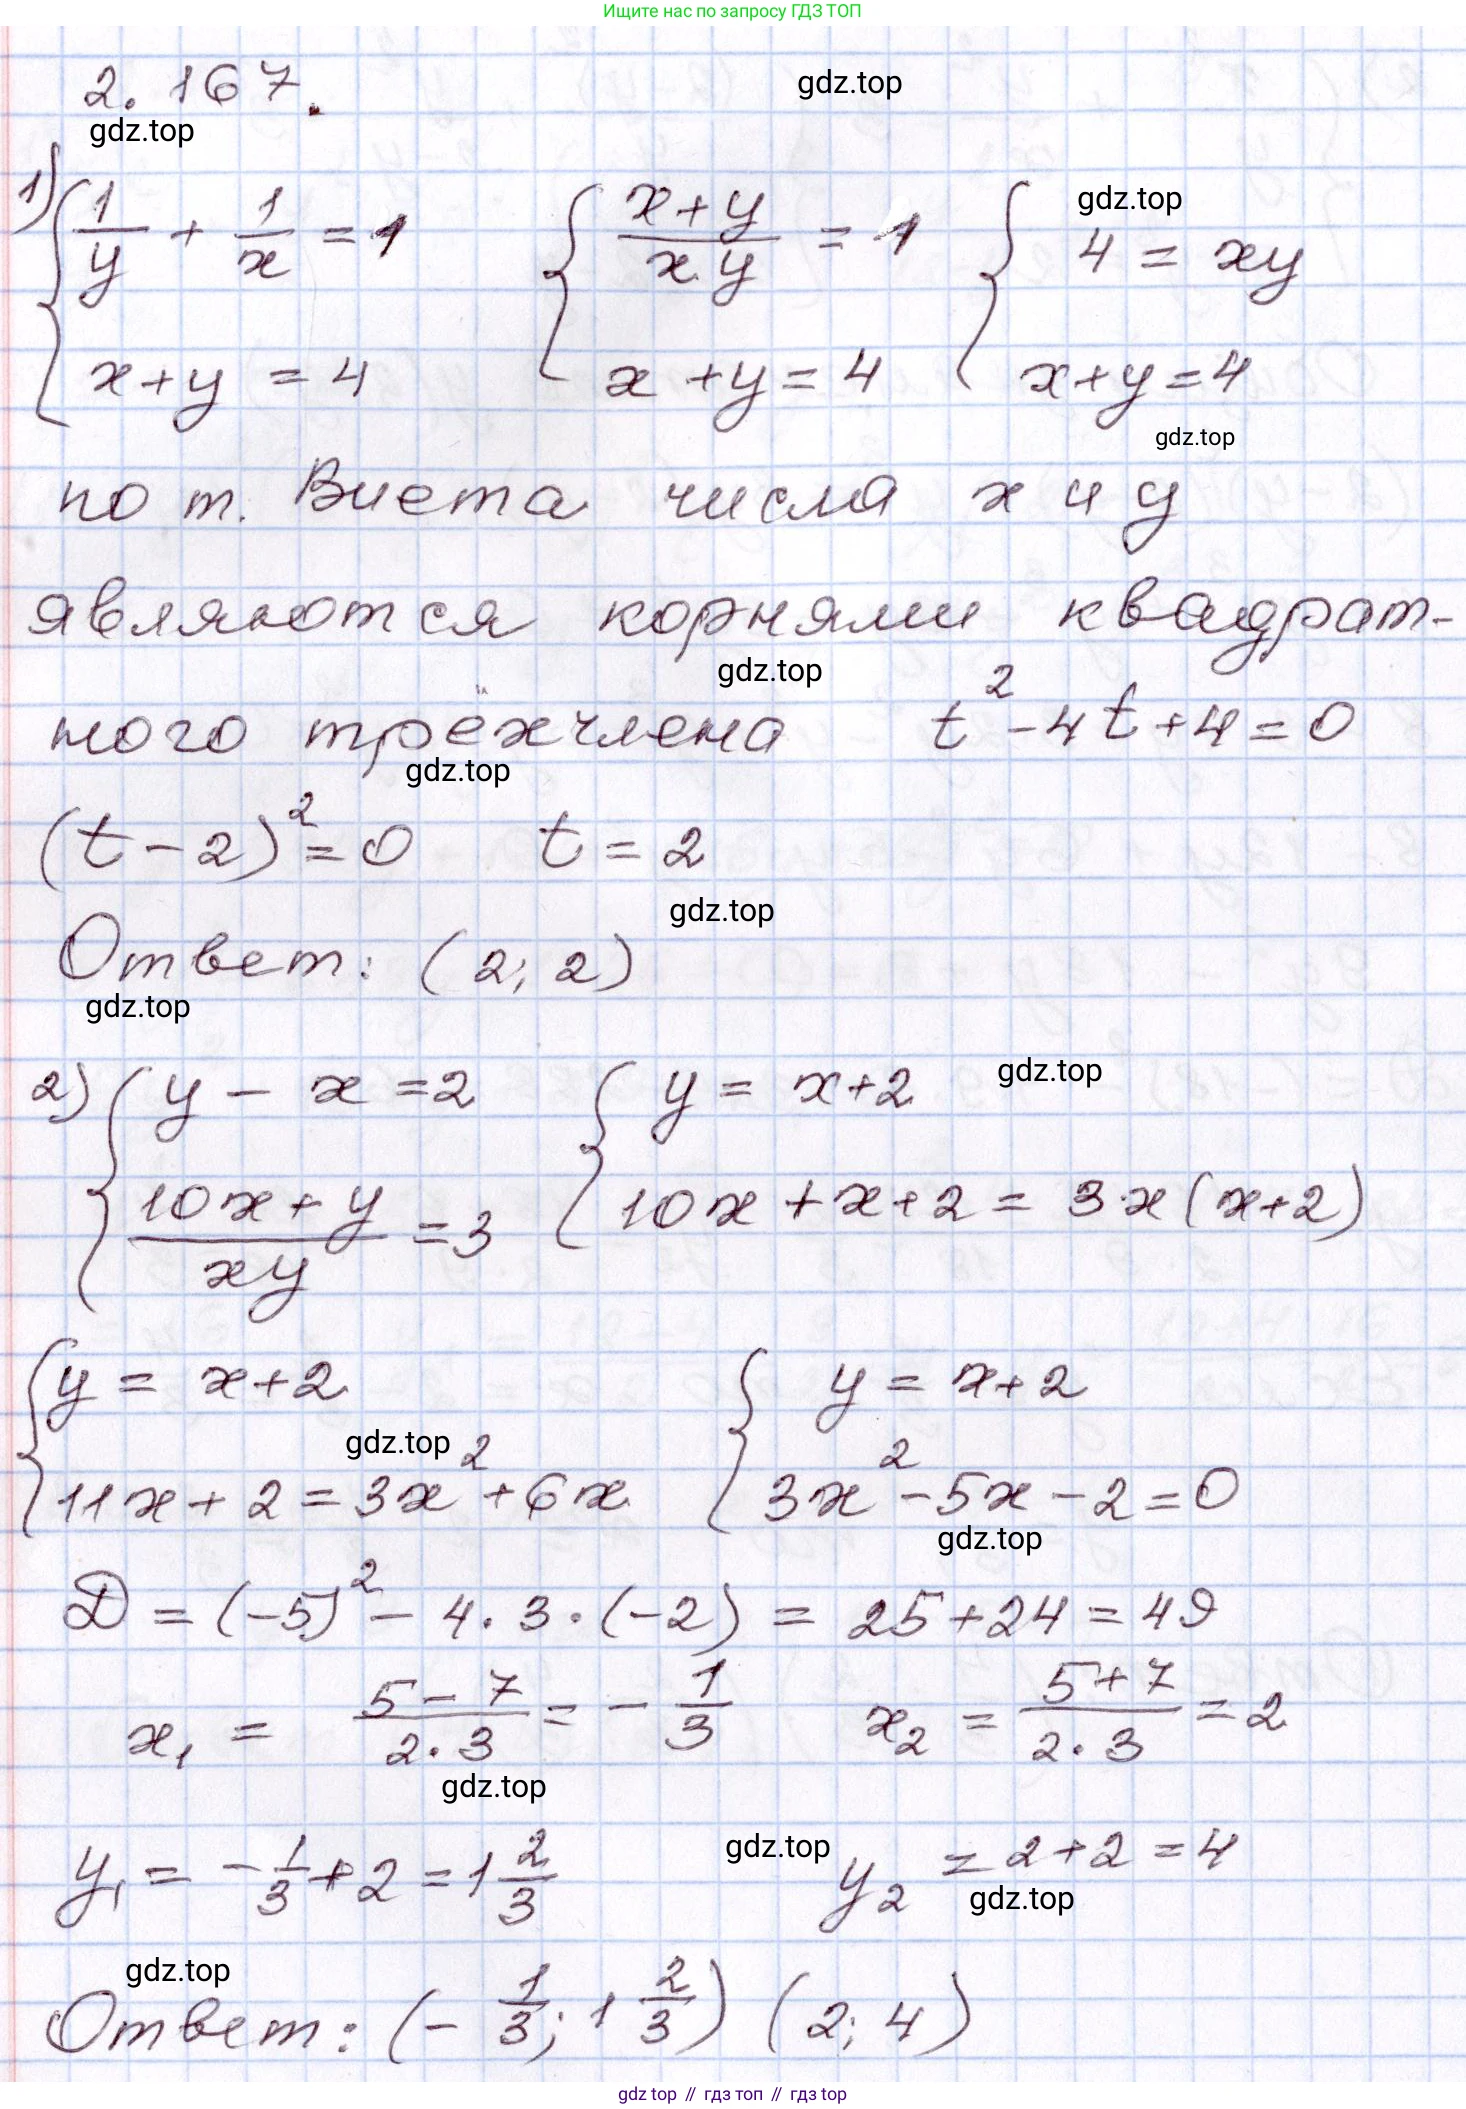 Ищите нас по запросу ГДЗ ТОП
2.167.
gdz.top
gdz.top
1) { 1/y + 1/x = 1   { (x+y)/(xy) = 1   { 4 = xy
gdz.top
x+y = 4   x+y = 4   x+y = 4
gdz.top
по т. Виета числа x и y
являются корнями квадрат-
gdz.top
ного трёхчлена t² - 4t + 4 = 0
gdz.top
(t - 2)² = 0   t = 2
gdz.top
Ответ: (2; 2)
gdz.top
2) { y - x = 2   { y = x+2
gdz.top
(10x + y)/(xy) = 3   10x + x + 2 = 3·x(x+2)
{ y = x+2   { y = x+2
gdz.top
11x + 2 = 3x² + 6x   3x² - 5x - 2 = 0
gdz.top
D = (-5)² - 4·3·(-2) = 25 + 24 = 49
x₁ = (5 - 7)/(2·3) = - 1/3   x₂ = (5+7)/(2·3) = 2
gdz.top
y₁ = - 1/3 + 2 = 1 2/3   y₂ = 2+2 = 4
gdz.top
gdz.top
gdz.top
Ответ: (- 1/3; 1 2/3) (2; 4)
gdz top // гдз топ // гдз top